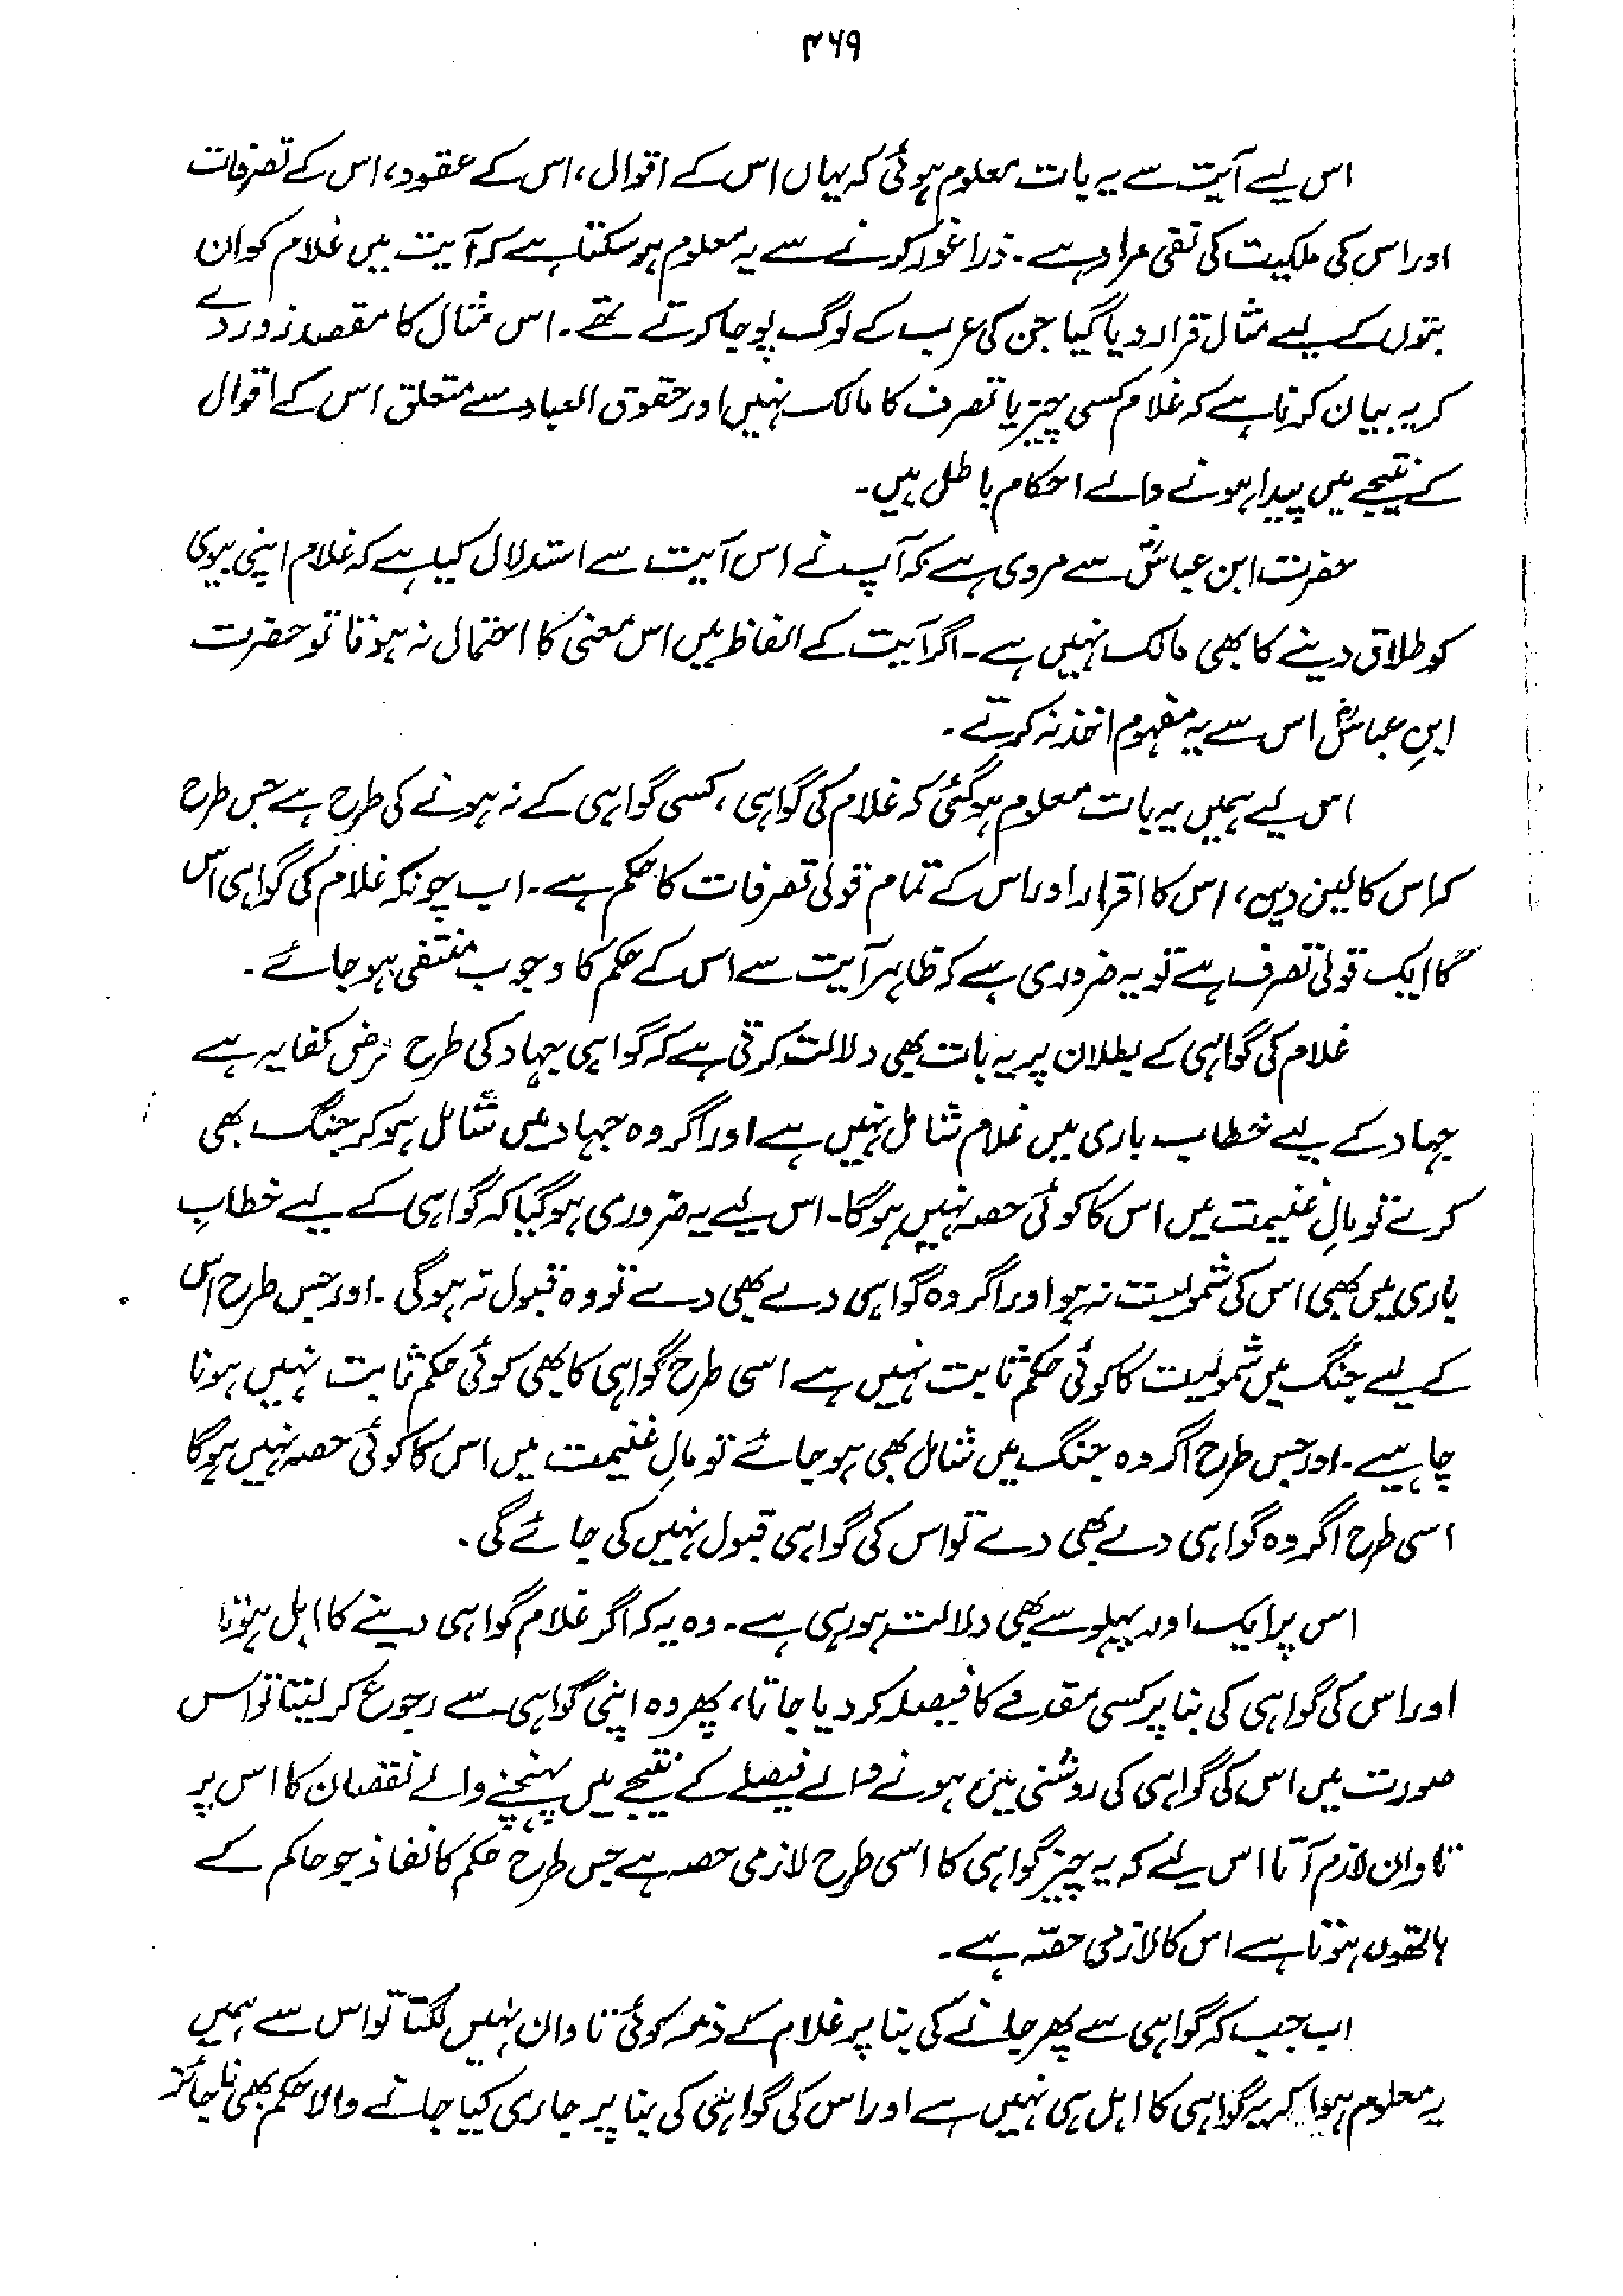 ۳۶۹
اس لیے آیت سے یہ بات معلوم ہوئی کہ یہاں اس کے اقوال، اس کے عقود، اس کے تصرفات
اور اس کی ملکیت کی نفی مراد ہے۔ ذرا غور کرنے سے یہ معلوم ہو سکتا ہے کہ آیت میں غلام کو ان
بتوں کے لیے مثال قرار دیا گیا جن کی عرب کے لوگ پوجا کرتے تھے۔ اس مثال کا مقصد زور دے
کر یہ بیان کرنا ہے کہ غلام کسی چیز یا تصرف کا مالک نہیں اور حقوق العباد سے متعلق اس کے اقوال
کے نتیجے میں پیدا ہونے والے احکام باطل ہیں۔
حضرت ابن عباسؓ سے مروی ہے کہ آپ نے اس آیت سے استدلال کیا ہے کہ غلام اپنی بیوی
کو طلاق دینے کا بھی مالک نہیں ہے۔ اگر آیت کے الفاظ میں اس معنی کا احتمال نہ ہوتا تو حضرت
ابنِ عباسؓ اس سے یہ مفہوم اخذ نہ کرتے۔
اس لیے ہمیں یہ بات معلوم ہو گئی کہ غلام کی گواہی، کسی گواہی کے نہ ہونے کی طرح ہے جس طرح
کہ اس کا لین دین، اس کا اقرار اور اس کے تمام قولی تصرفات کا حکم ہے۔ اب چونکہ غلام کی گواہی اس
کا ایک قولی تصرف ہے تو یہ ضروری ہے کہ ظاہر آیت سے اس کے حکم کا وجوب منتفی ہو جائے۔
غلام کی گواہی کے بطلان پر یہ بات بھی دلالت کرتی ہے کہ گواہی جہاد کی طرح فرض کفایہ ہے
جہاد کے لیے خطاب باری میں غلام شامل نہیں ہے اور اگر وہ جہاد میں شامل ہو کر جنگ بھی
کرے تو مالِ غنیمت میں اس کا کوئی حصہ نہیں ہوگا۔ اس لیے یہ ضروری ہو گیا کہ گواہی کے لیے خطابِ
باری میں بھی اس کی شمولیت نہ ہو اور اگر وہ گواہی دے بھی دے تو وہ قبول نہ ہوگی۔ اور جس طرح اس
کے لیے جنگ میں شمولیت کا کوئی حکم ثابت نہیں ہے اسی طرح گواہی کا بھی کوئی حکم ثابت نہیں ہونا
چاہیے۔ اور جس طرح اگر وہ جنگ میں شامل بھی ہو جائے تو مالِ غنیمت میں اس کا کوئی حصہ نہیں ہوگا
اسی طرح اگر وہ گواہی دے بھی دے تو اس کی گواہی قبول نہیں کی جائے گی۔
اس پر ایک اور پہلو سے بھی دلالت ہو رہی ہے۔ وہ یہ کہ اگر غلام گواہی دینے کا اہل ہوتا
اور اس کی گواہی کی بنا پر کسی مقدمے کا فیصلہ کر دیا جاتا، پھر وہ اپنی گواہی سے رجوع کر لیتا تو اس
صورت میں اس کی گواہی کی روشنی میں ہونے والے فیصلے کے نتیجے میں پہنچنے والے نقصان کا اس پر
تاوان لازم آتا اس لیے کہ یہ چیز گواہی کا اسی طرح لازمی حصہ ہے جس طرح حکم کا نفاذ جو حاکم کے
ہاتھوں ہوتا ہے اس کا لازمی حصّہ ہے۔
اب جب کہ گواہی سے پھر جانے کی بنا پر غلام کے ذمہ کوئی تاوان نہیں لگتا تو اس سے ہمیں
یہ معلوم ہوا کہ یہ گواہی کا اہل ہی نہیں ہے اور اس کی گواہی کی بنا پر جاری کیا جانے والا حکم بھی ناجائز